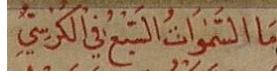 ما السَّمَوَاتُ السَّبْعُ فِي الْكُرْسِيِّ